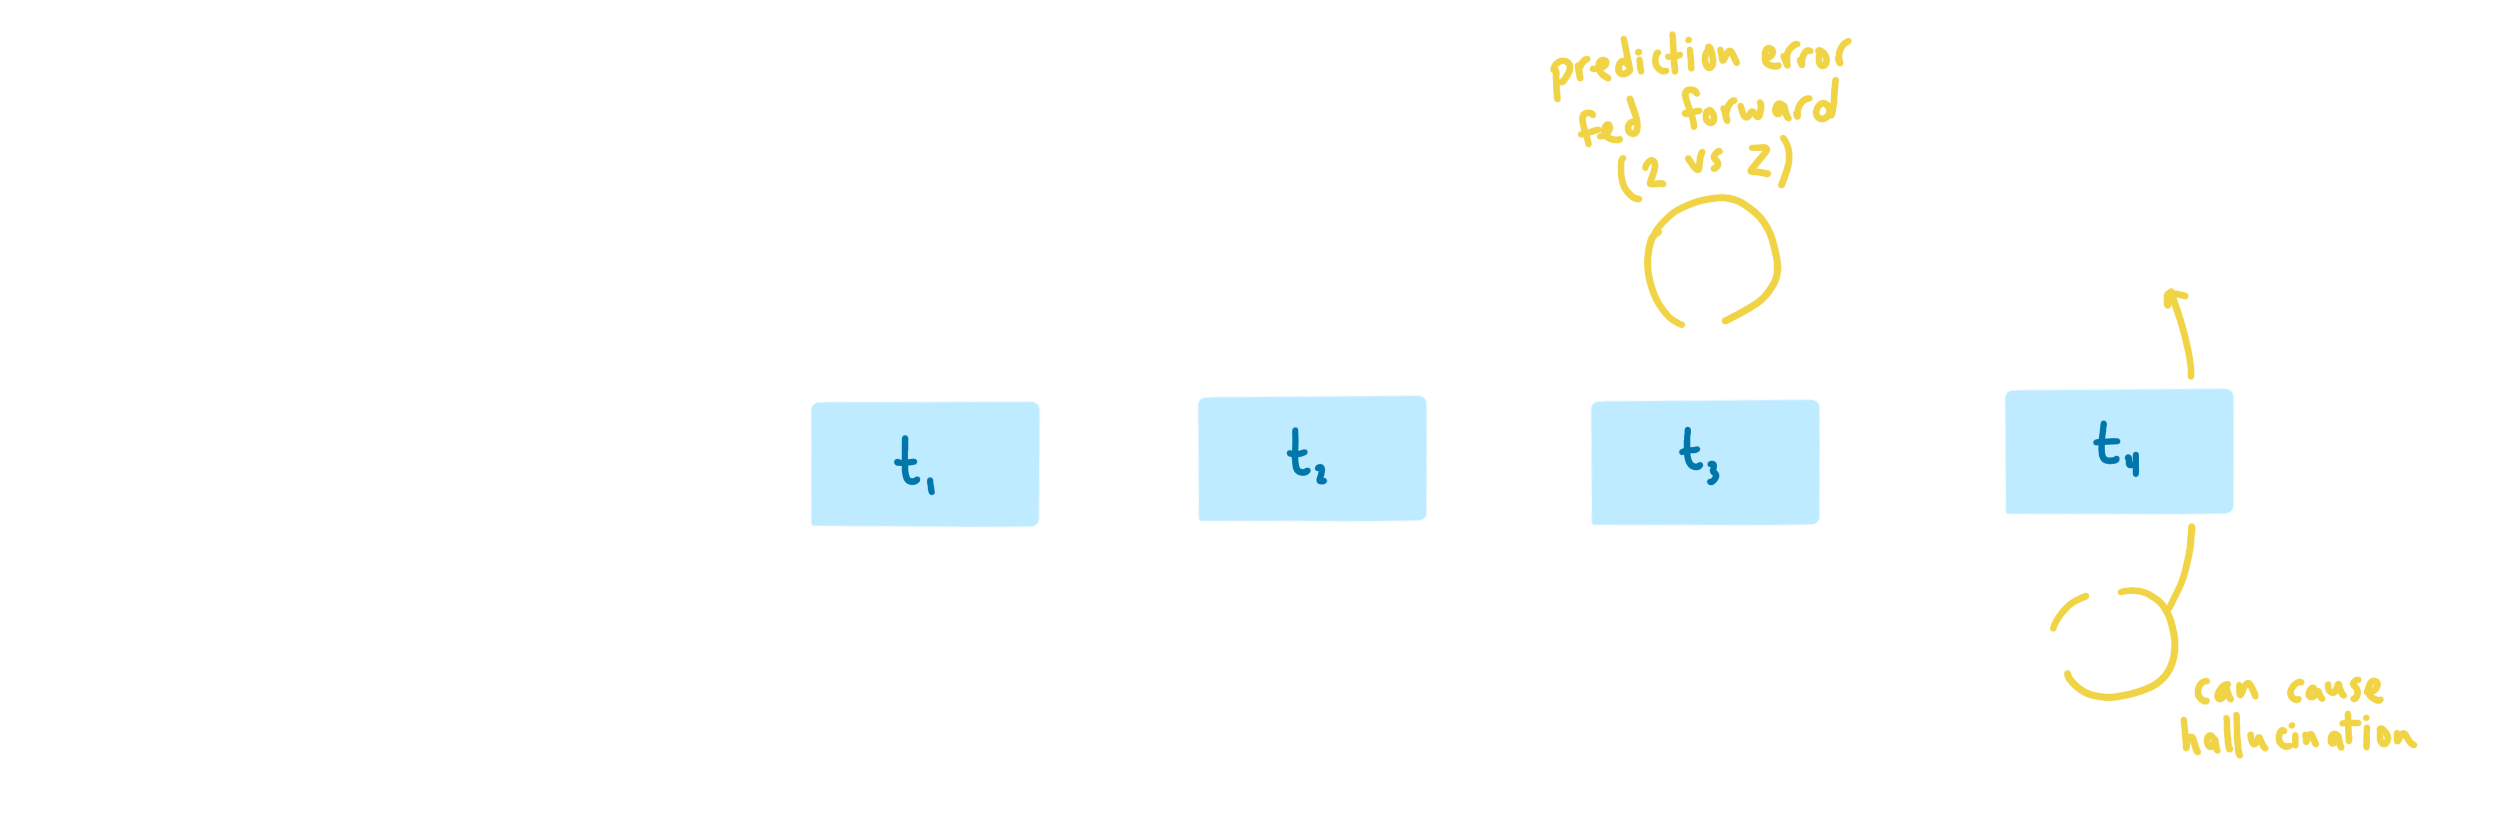 prediction error
fed forward
(2 vs z)
t₁
t₂
t₃
t₄
can cause
hallucination